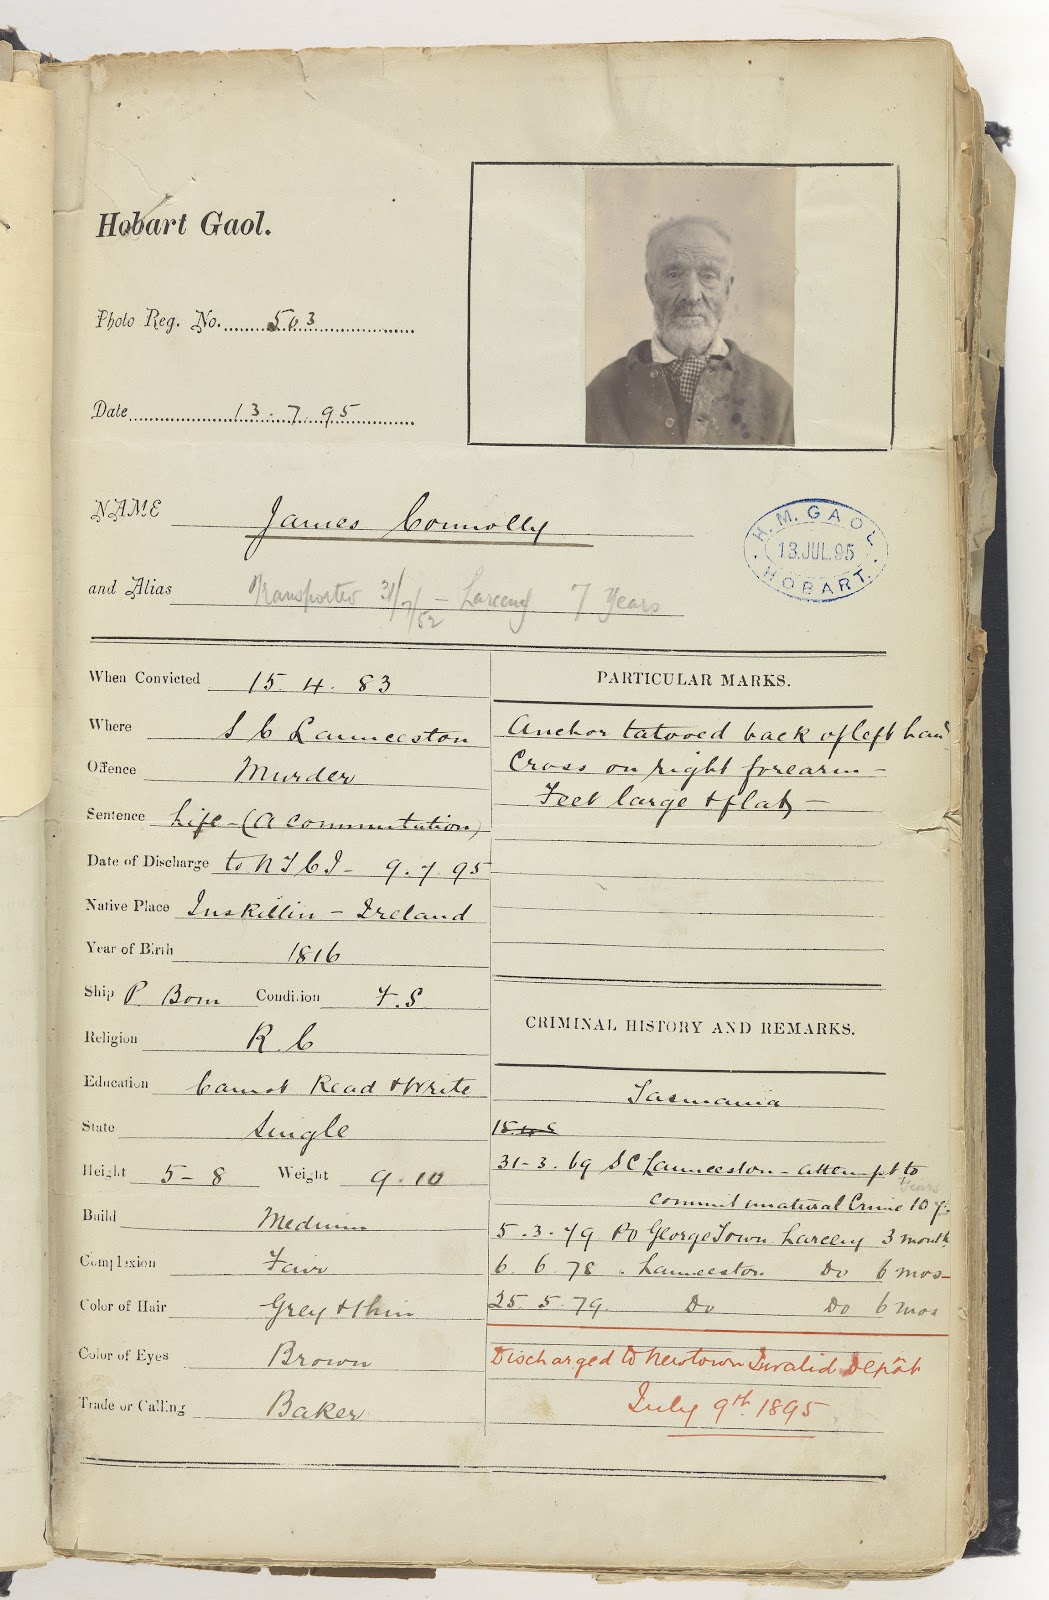 Hobart Gaol.
Photo Reg. No. 503
Date 13.7.95
NAME James Connolly
H.M. GAOL
13.JUL.95
HOBART.
and Alias Transported 31/7/52 - Larceny 7 Years
When Convicted 15. 4. 83
Where S C Launceston
Offence Murder
Sentence Life - (A commutation)
Date of Discharge to N T C I - 9.7.95
Native Place Inskillin - Ireland
Year of Birth 1816
Ship P. Bom Condition F.S
Religion R. C
Education Cannot Read & Write
State Single
Height 5-8 Weight 9.10
Build Medium
Complexion Fair
Color of Hair Grey & thin
Color of Eyes Brown
Trade or Calling Baker
PARTICULAR MARKS.
Anchor tatooed back of left hand
Cross on right forearm -
Feet large & flat -
CRIMINAL HISTORY AND REMARKS.
Tasmania
31-3.69 SC Launceston - attempt to
Years
commit unatural Crime 10 y.
5.3.79 PO George Town Larceny 3 month
6. 6. 78 . Launceston Do 6 mos -
25. 5. 79. Do Do 6 mos
Discharged to Newtown Invalid Depôt
July 9th 1895